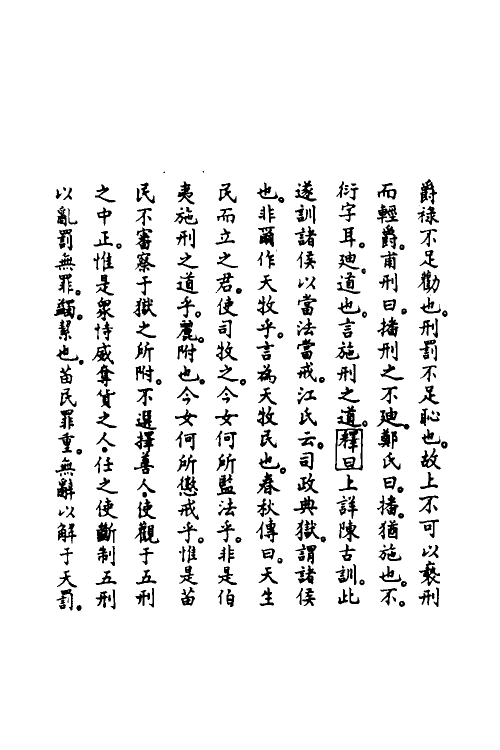 爵祿不足勸也。刑罰不足恥也。故上不可以褻刑
而輕爵。甫刑曰。播刑之不迪。鄭氏曰。播猶施也。不。
衍字耳。迪。道也。言施刑之道。釋曰上詳陳古訓。此
遂訓諸侯以當法當戒。江氏云。司政典獄。謂諸侯
也。非爾作天牧乎。言為天牧民也。春秋傳曰。天生
民而立之君。使司牧之。今女何所監法乎。非是伯
夷施刑之道乎。麗。附也。今女何所懲戒乎。惟是苗
民不審察于獄之所附。不選擇善人。使觀于五刑
之中正。惟是衆恃威奪貨之人。任之使斷制五刑
以亂罰無罪。蠲。絜也。苗民罪重。無辭以解于天罰。